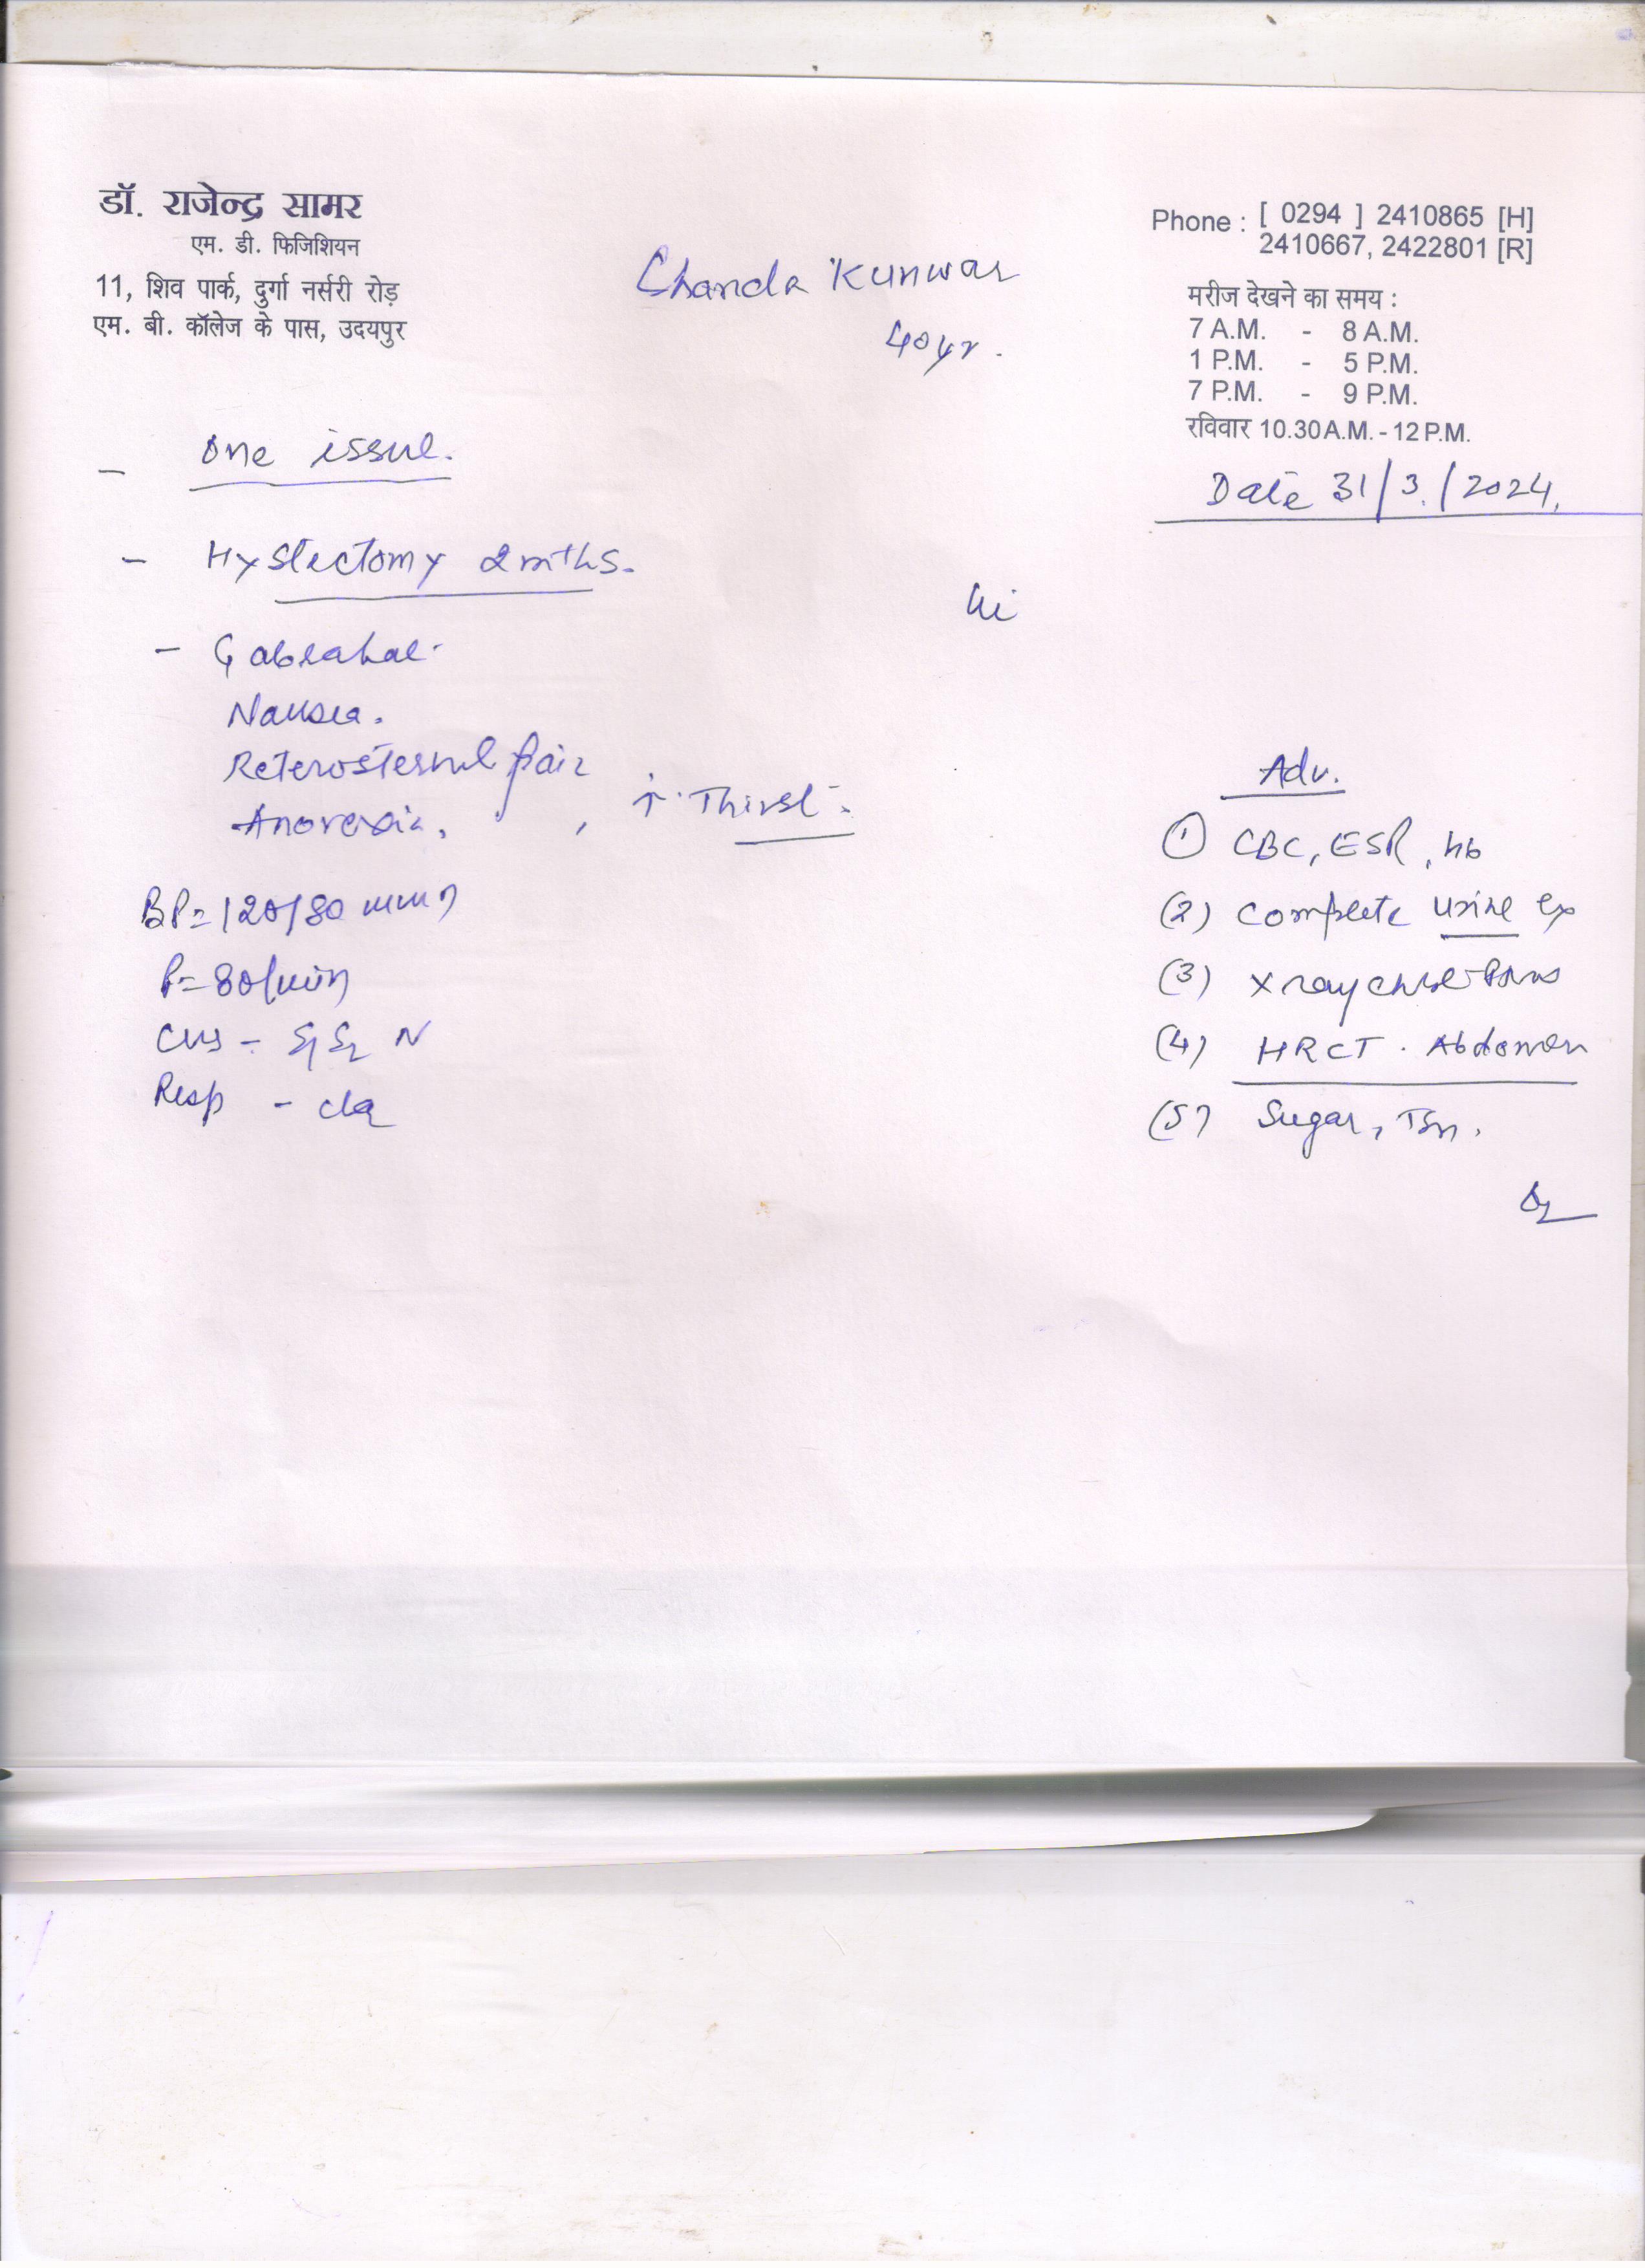 डॉ. राजेन्द्र सामर
एम. डी. फिजिशियन
11, शिव पार्क, दुर्गा नर्सरी रोड़
एम. बी. कॉलेज के पास, उदयपुर
Phone : [ 0294 ] 2410865 [H]
2410667, 2422801 [R]
मरीज देखने का समय :
7 A.M. - 8 A.M.
1 P.M. - 5 P.M.
7 P.M. - 9 P.M.
रविवार 10.30 A.M. - 12 P.M.
Chanda Kunwar
40 yr.
Date 31/3/2024,
- One issue.
- Hystectomy 2 mths.
- Gabrahat
Nausea.
Reterosternal pain
Anorexia, , ↑ Thirst.
BP = 120/80 mm
P = 80/min
CVS - S1 S2 N
Resp - clr
Adv.
(1) CBC, ESR, Hb
(2) Complete Urine Ex
(3) X ray chest
(4) HRCT. Abdomen
(5) Sugar,